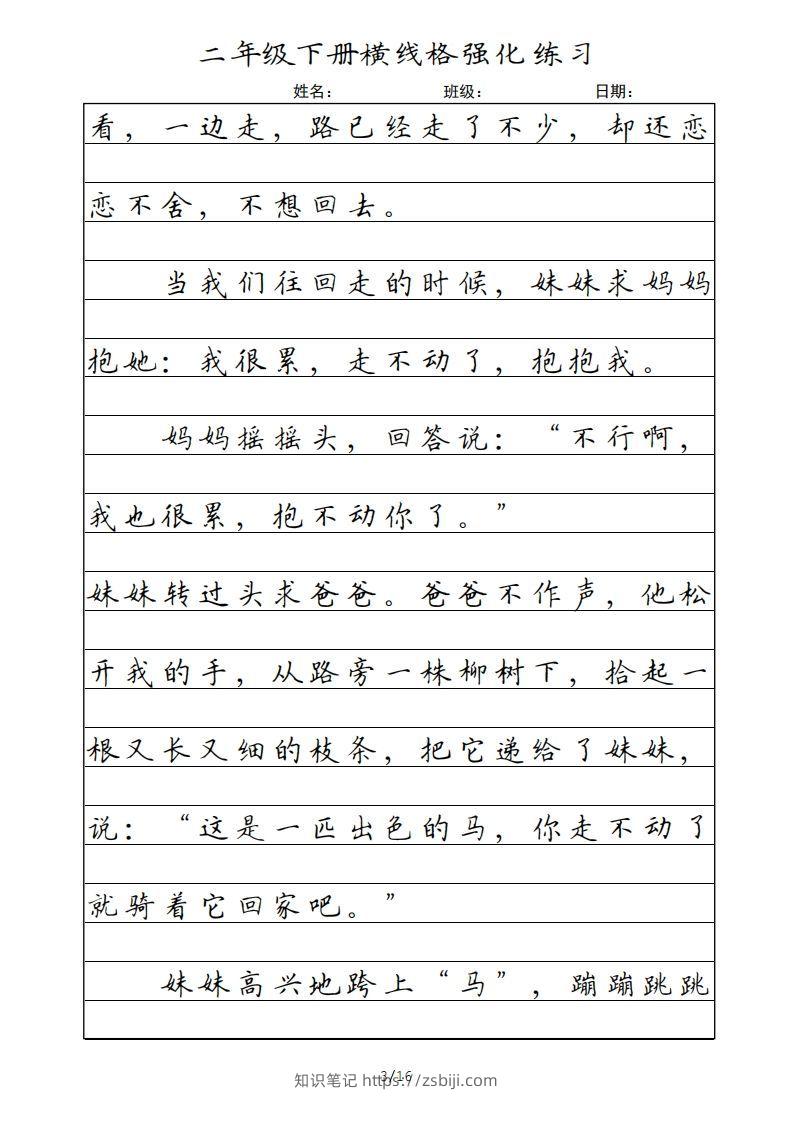 二年级下册横线格强化练习
姓名： 班级： 日期：
看，一边走，路已经走了不少，却还恋
恋不舍，不想回去。
当我们往回走的时候，妹妹求妈妈
抱她：我很累，走不动了，抱抱我。
妈妈摇摇头，回答说：“不行啊，
我也很累，抱不动你了。”
妹妹转过头求爸爸。爸爸不作声，他松
开我的手，从路旁一株柳树下，拾起一
根又长又细的枝条，把它递给了妹妹，
说：“这是一匹出色的马，你走不动了
就骑着它回家吧。”
妹妹高兴地跨上“马”，蹦蹦跳跳
3/16
知识笔记 https://zsbiji.com